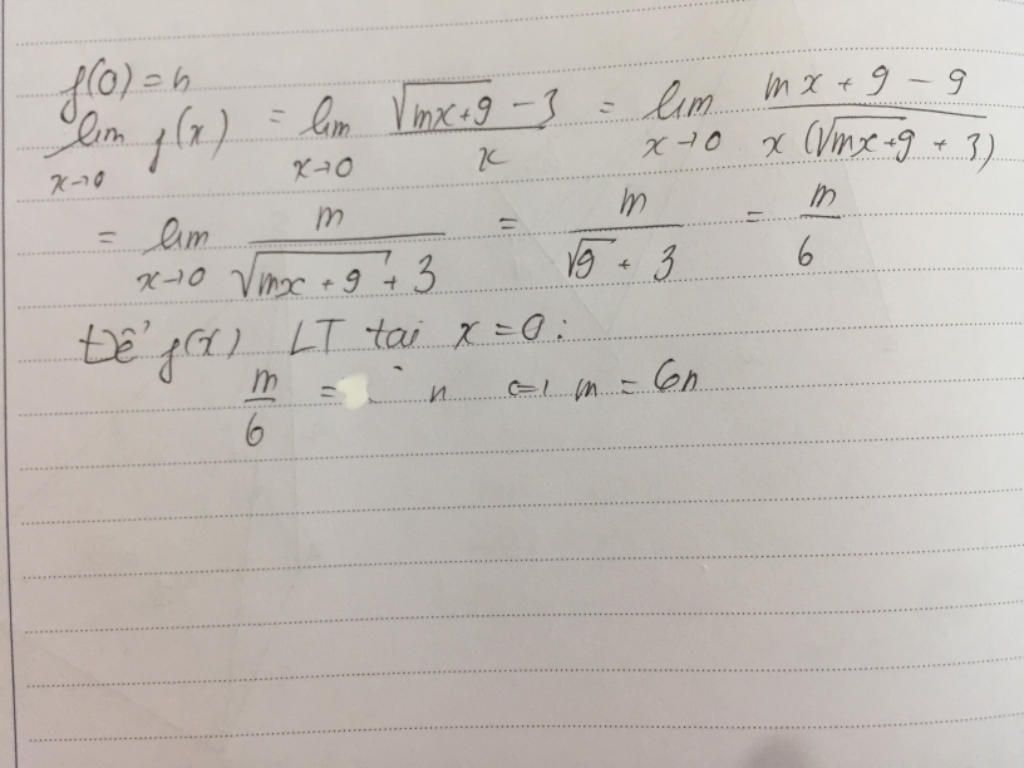 f(0) = n
lim x→0 f(x) = lim x→0 (√(mx+9) - 3)/x = lim x→0 (mx + 9 - 9)/(x(√(mx+9) + 3))
= lim x→0 m/(√(mx+9) + 3) = m/(√9 + 3) = m/6
Để f(x) LT tại x = 0:
m/6 = n <=> m = 6n